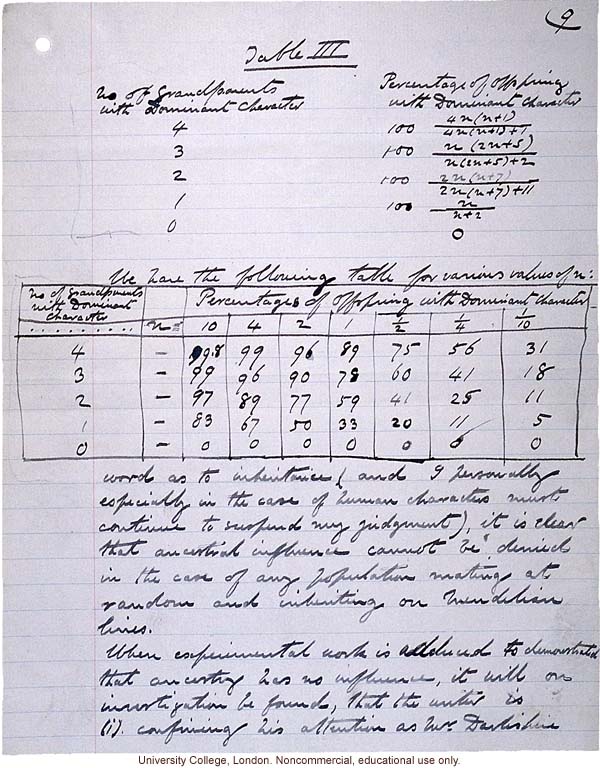 9
Table III
No of Grandparents
with Dominant Character
Percentage of Offspring
with Dominant Character
4 100 4n(n+1) / 4n(n+1)+1
3 100 n(2n+5) / n(2n+5)+2
2 100 2n(n+7) / 2n(n+7)+11
1 100 n / n+2
0 0
We have the following table for various values of n:
No of Grandparents
with Dominant
Character
Percentages of Offspring with Dominant Character
......... n= 10 4 2 1 1/2 1/4 1/10
4 – 99.8 99 96 89 75 56 31
3 – 99 96 90 78 60 41 18
2 – 97 89 77 59 41 25 11
1 – 83 67 50 33 20 11 5
0 – 0 0 0 0 0 0 0
word as to inheritance (and I personally
especially in the case of human characters must
continue to suspend my judgment), it is clear
that ancestral influence cannot be denied
in the case of any population mating at
random and inheriting on Mendelian
lines.
When experimental work is adduced to demonstrate
that ancestry has no influence, it will on
investigation be found, that the writer is
(i). confining his attention as Mr Darbishire
University College, London. Noncommercial, educational use only.